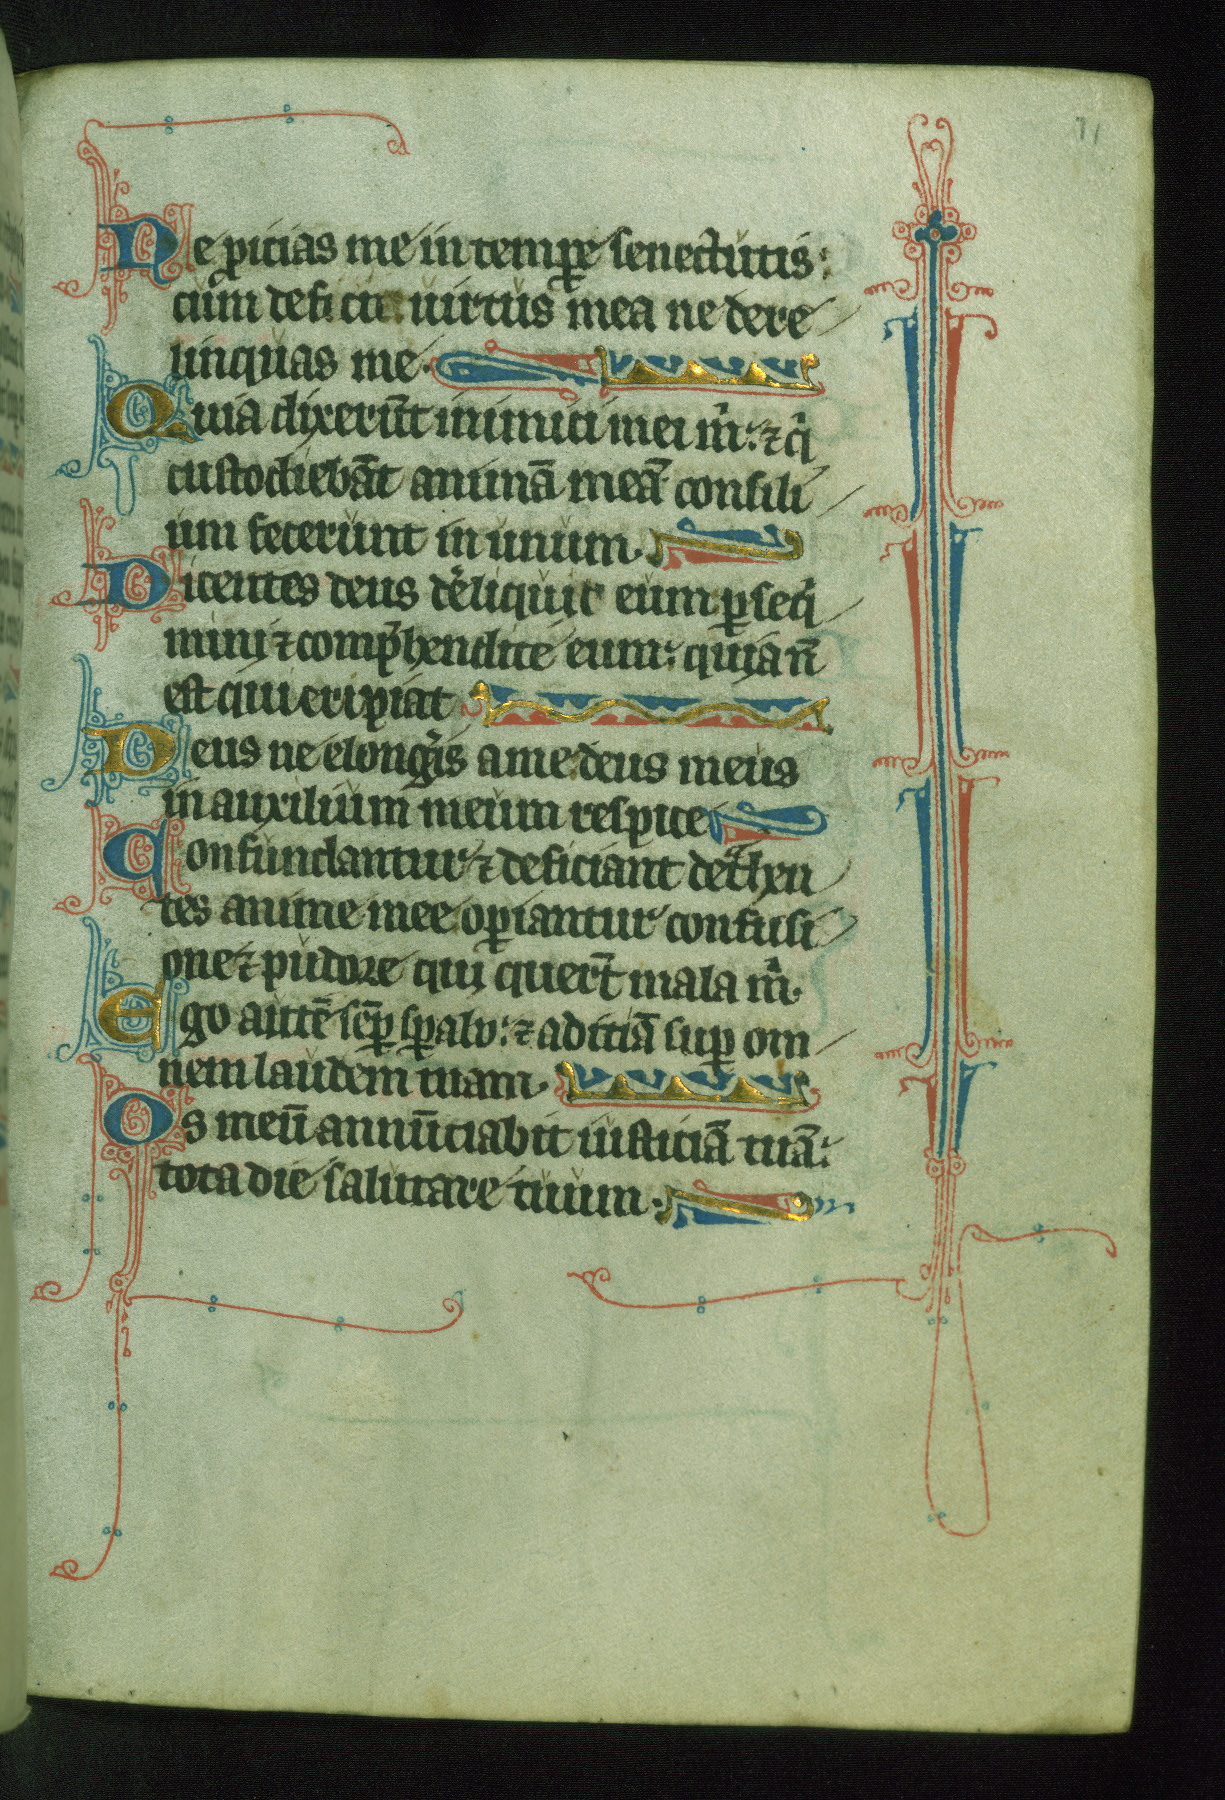 Ne ꝓicias me in temꝑe senectutis:
cum defecit uirtus mea ne dere
linquas me.
Quia dixerūt inimici mei m̍: ⁊ q̍
custodiebāt animā meā consili
um fecerunt in unum.
Dicentes deus dereliquit eum ꝑseq̍
mini ⁊ comp̍hendite eum: quia n̄
est qui eripiat
Deus ne elongeris a me deus meus
in auxilium meum respice
Confundantur ⁊ deficiant det̍hen
tes anime mee oꝑiantur confusi
one ⁊ pudore qui querūt mala m̍.
Ego autē sēꝑ sꝑabo: ⁊ adiciā suꝑ om
nem laudem tuam.
Os meū annūciabit iusticiā tuā:
tota die salutare tuum.
71